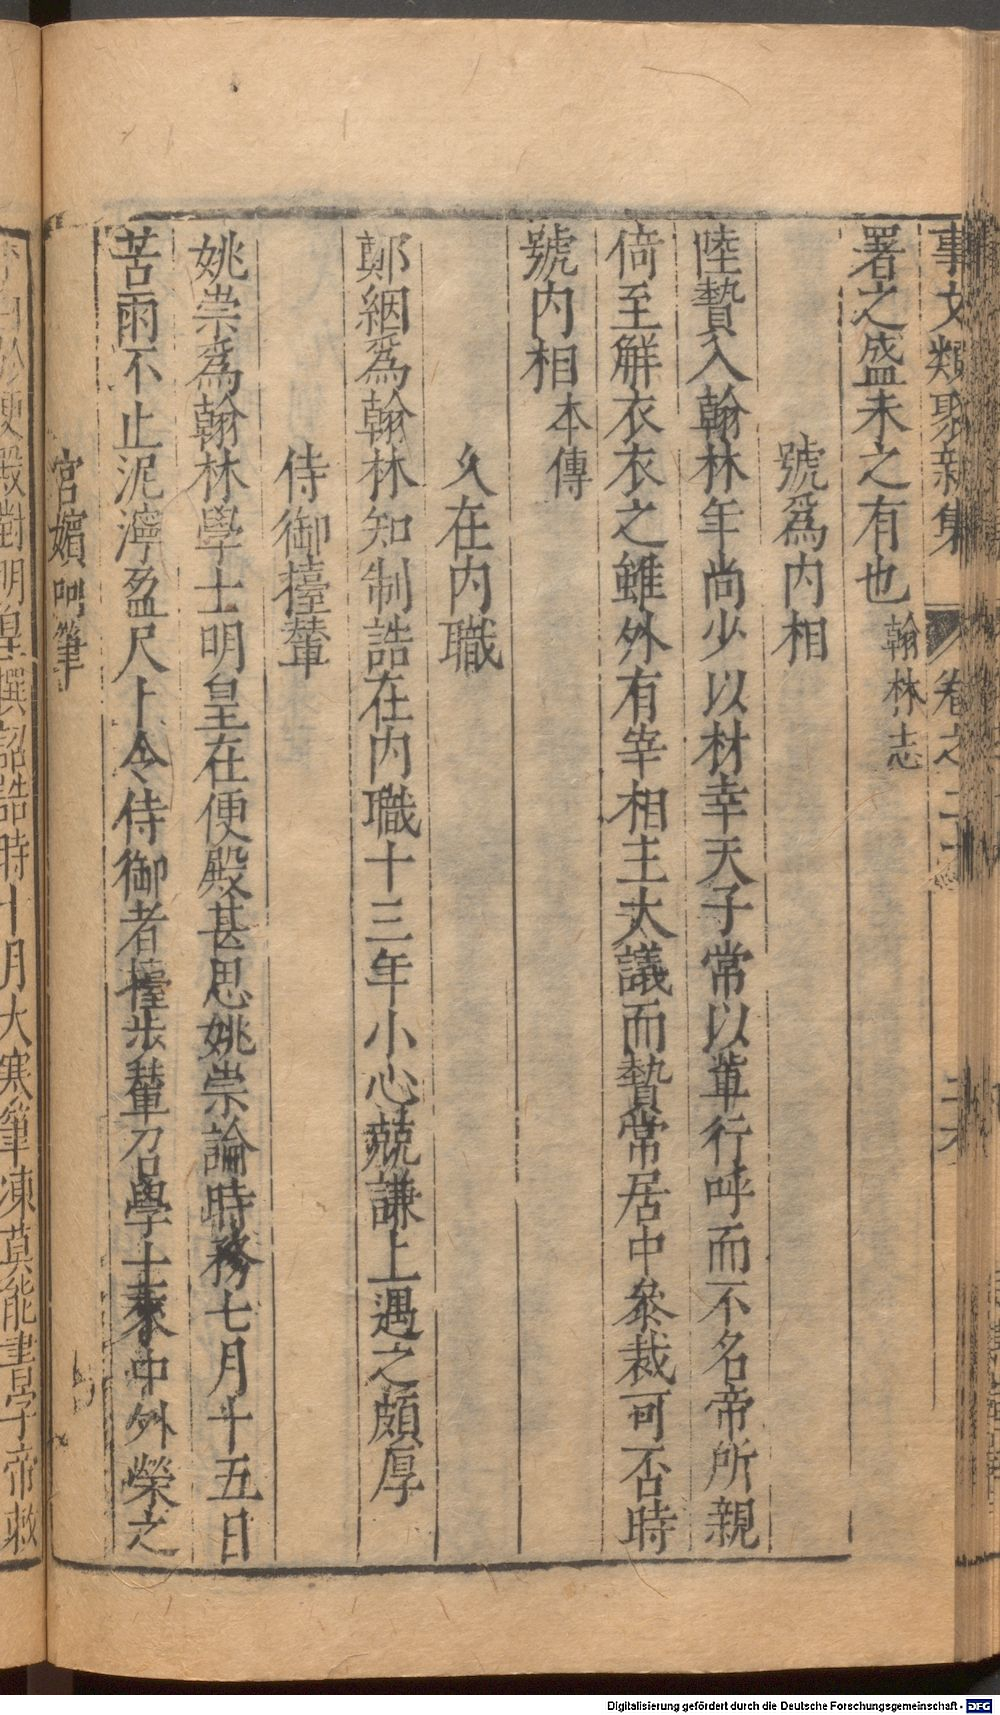 事文類聚新集 卷之二十
署之盛未之有也翰林志
號爲內相
陸贄入翰林年尚少以材幸天子常以輩行呼而不名帝所親
倚至解衣衣之雖外有宰相主大議而贄常居中叅裁可否時
號內相本傳
久在內職
鄭絪爲翰林知制誥在內職十三年小心兢謙上遇之頗厚
侍御擡輦
姚崇爲翰林學士明皇在便殿甚思姚崇論時務七月十五日
苦雨不止泥濘盈尺上令侍御者擡步輦召學士來中外榮之
宮嬪呵筆
李白於便殿對明皇撰詔誥時十月大寒筆凍莫能書字帝敕
Digitalisierung gefördert durch die Deutsche Forschungsgemeinschaft - DFG